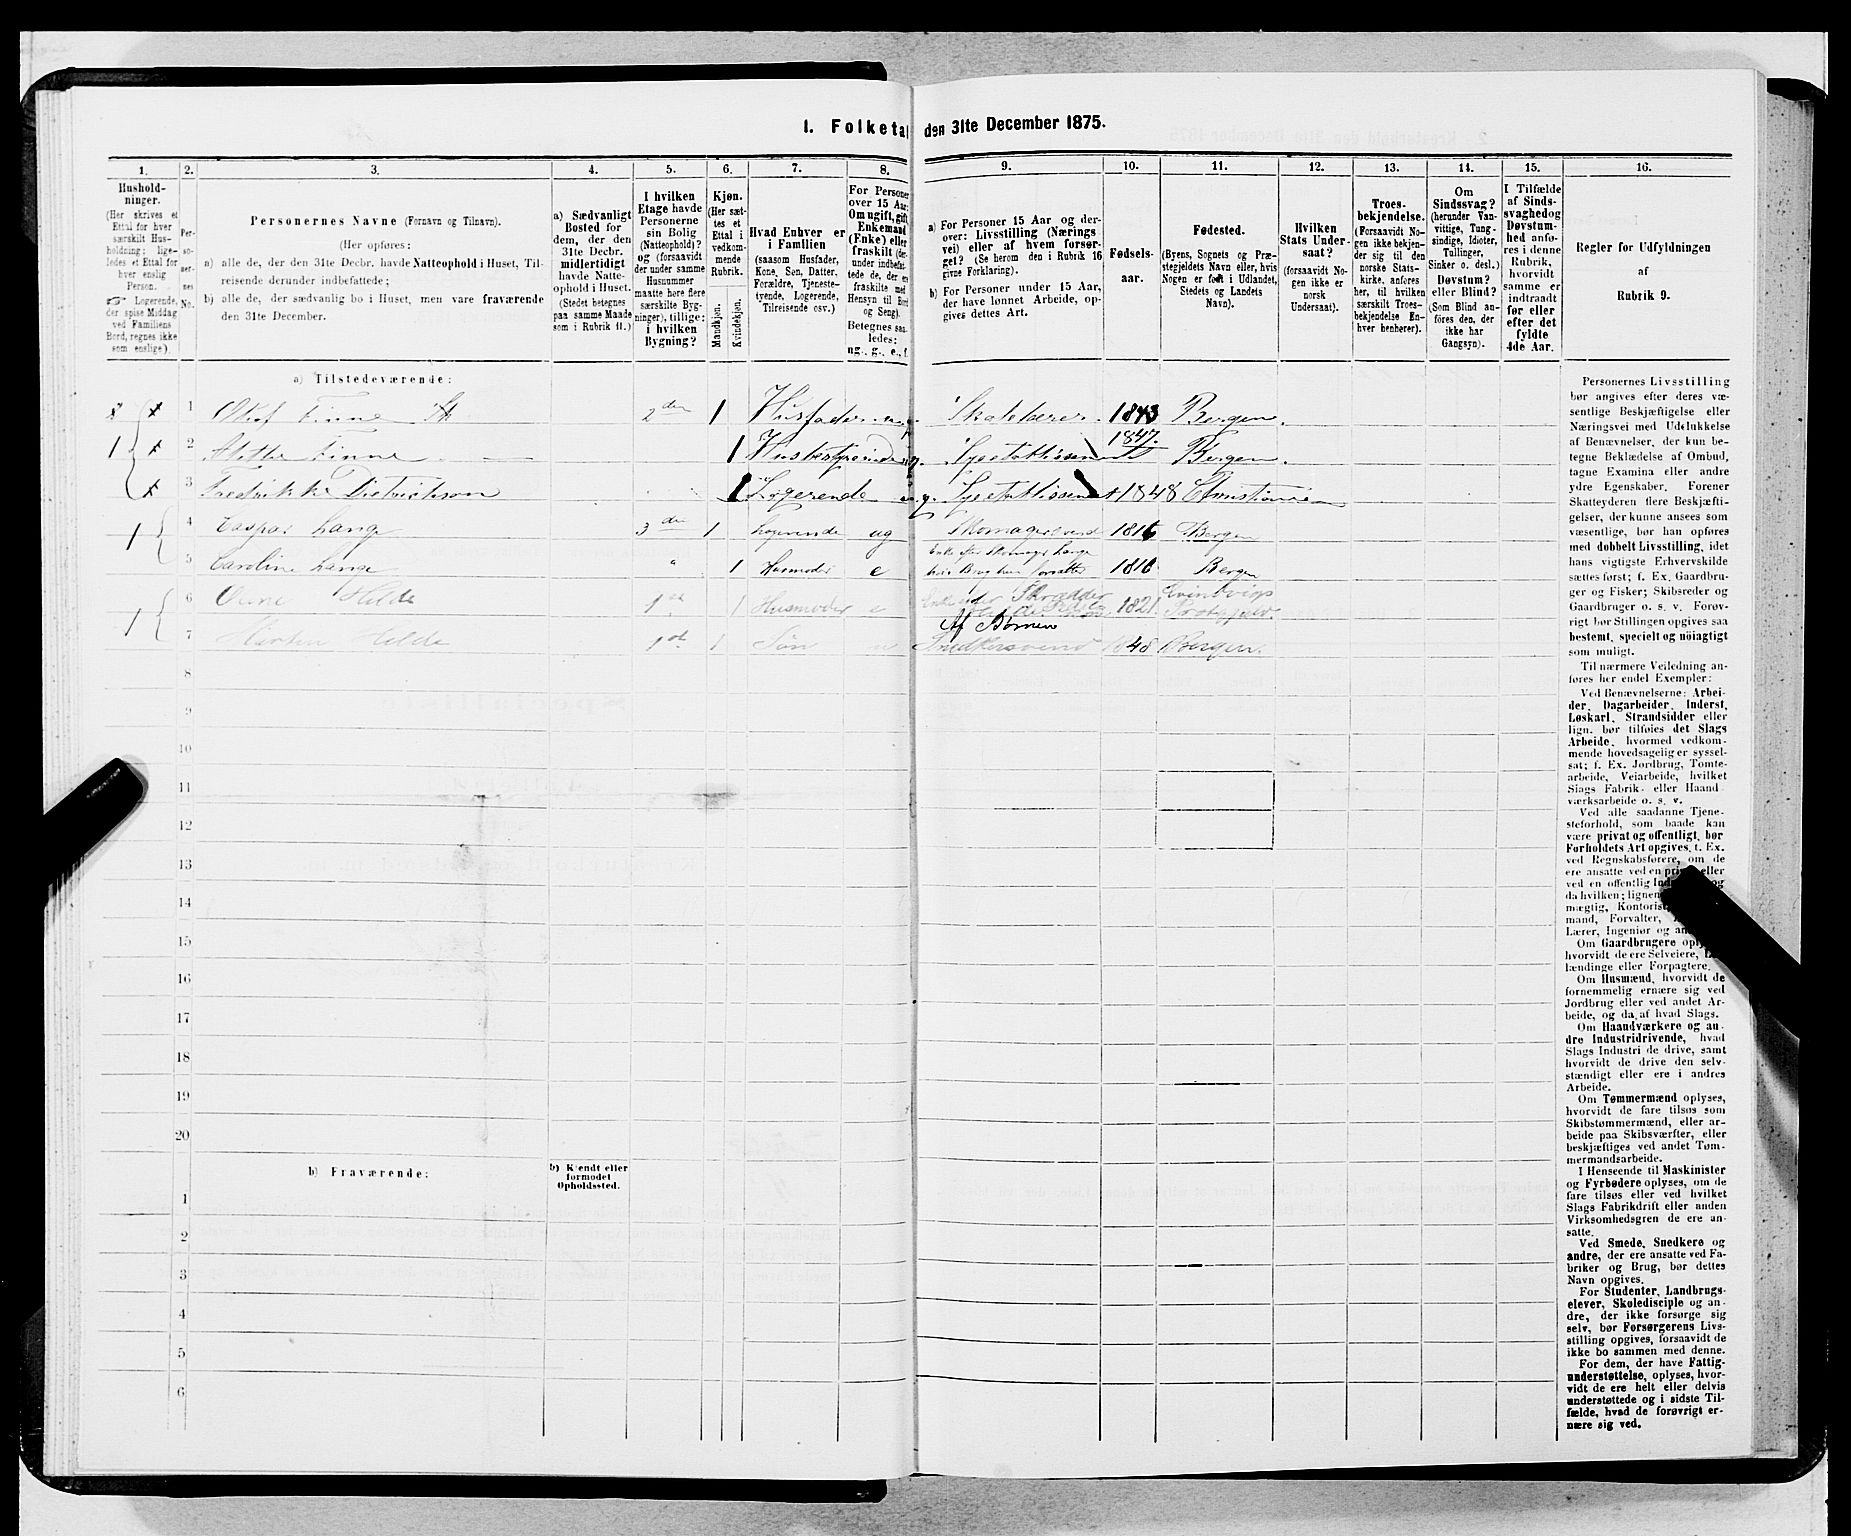 I. Folketal den 31te December 1875.
1. 2. 3. 4. 5. 6. 7. 8. 9. 10. 11. 12. 13. 14. 15. 16.
Hushold-
ninger.
(Her skrives et
Ettal for hver
særskilt Hus-
holdning; lige-
ledes et Ettal for
hver enslig
Person.
☞ Logerende,
der spise Middag
ved Familiens
Bord, regnes ikke
som enslige).
Per-
so-
ner-
nes
No.
Personernes Navne (Fornavn og Tilnavn).
(Her opføres:
a) alle de, der den 31te Decbr. havde Natteophold i Huset, Til-
reisende derunder indbefattede;
b) alle de, der sædvanlig bo i Huset, men vare fraværende
den 31te December.
a) Sædvanligt
Bosted for
dem, der den
31te Decbr.
midlertidigt
havde Natte-
ophold i Huset.
(Stedet betegnes
paa samme Maade
som i Rubrik 11.)
I hvilken
Etage havde
Personerne
sin Bolig
(Natteophold)?
og (forsaavidt
der under samme
Husnummer
maatte høre flere
særskilte Byg-
ninger), tillige:
i hvilken
Bygning?
Kjøn.
(Her sæt-
tes et
Ettal i
vedkom-
mende
Rubrik.
Mandkjøn.
Kvindekjøn.
Hvad Enhver er
i Familien
(saasom Husfader,
Kone, Søn, Datter,
Forældre, Tjeneste-
tyende, Logerende,
Tilreisende osv.)
For Personer
over 15 Aar:
Om ugift, gift,
Enkemand
(Enke) eller
fraskilt (der-
under indbefat-
tede de, der ere
fraskilte med
Hensyn til Bord
og Seng).
Betegnes saa-
ledes:
ug., g., e., f.
a) For Personer 15 Aar og der-
over: Livsstilling (Nærings-
vei) eller af hvem forsør-
get? (Se herom den i Rubrik 16
givne Forklaring).
b) For Personer under 15 Aar,
der have lønnet Arbeide, op-
gives dettes Art.
Fødsels-
aar.
Fødested.
(Byens, Sognets og Præ-
stegjeldets Navn eller, hvis
Nogen er født i Udlandet,
Stedets og Landets
Navn).
Hvilken
Stats Under-
saat?
(forsaavidt No-
gen ikke er
norsk
Undersaat).
Troes-
bekjendelse.
(Forsaavidt No-
gen ikke bekjen-
der sig til den
norske Stats-
kirke, anføres
her, til hvilken
særskilt Troes-
bekjendelse En-
hver henhører).
Om
Sindssvag?
(herunder Van-
vittige, Tung-
sindige, Idioter,
Tullinger,
Sinker o. desl.)
Døvstum?
eller Blind?
(Som Blind an-
føres den, der
ikke har
Gangsyn).
I Tilfælde
af Sinds-
svaghed og
Døvstum-
hed anfø-
res i denne
Rubrik,
hvorvidt
samme er
indtraadt
før eller
efter det
fyldte
4de Aar.
Regler for Udfyldningen
af
Rubrik 9.
a) Tilstedeværende:
1 Oluf Finne 2den 1 Husfader 1843 Bergen.
1 2 Finne 1 Husbestyrerinde 1847. Bergen.
3 Fredrikke Dietrichson 1 Logerende ug. 1848 Christiania
1 4 Caspar Lange 3die 1 Logerende ug Skomagersvend 1816 Bergen
Enke efter Skomager Lange
5 Caroline Lange " 1 Husmoder e 1810 Bergen
6 Hilde 1ste 1 Husmoder e Enke efter Skrædder 1821.
Af Børnene
1 7 Hilde 1ste 1 Søn u Snedkersvend 1848 Bergen.
8
9
10
11
12
13
14
15
16
17
18
19
20
b) Fraværende:
b) Kjendt eller
formodet
Opholdssted.
1
2
3
4
5
6
Personernes Livsstilling
bør angives efter deres væ-
sentlige Beskjæftigelse eller
Næringsvei med Udelukkelse
af Benævnelser, der kun be-
tegne Beklædelse af Ombud,
tagne Examina eller andre
ydre Egenskaber. Forener
Skatteyderen flere Beskjæfti-
gelser, der kunne ansees som
væsentlige, bør han opføres
med dobbelt Livsstilling, idet
hans vigtigste Erhvervskilde
sættes først; f. Ex. Gaardbru-
ger og Fisker; Skibsreder og
Gaardbruger o. s. v. Forøv-
rigt bør Stillingen opgives saa
bestemt, specielt og nøiagtigt
som muligt.
Til nærmere Veiledning an-
føres her endel Exempler:
Ved Benævnelserne: Arbei-
der, Dagarbeider, Inderst,
Løskarl, Strandsidder eller
lign. bør tilføies det Slags
Arbeide, hvormed vedkom-
mende hovedsagelig er syssel-
sat; f. Ex. Jordbrug, Tomte-
arbeide, Veiarbeide, hvilket
Slags Fabrik- eller Haand-
værksarbeide o. s. v.
Ved alle saadanne Tjene-
steforhold, som baade kan
være privat og offentligt, bør
Forholdets Art opgives, t. Ex.
ved Regnskabsførere, om de
ere ansatte ved en eller
ved en offentlig og
da hvilken;
mægtig,
mand, Forvalter,
Lærer, Ingeniør og
Om Gaardbrugere
hvorvidt de ere Selveiere,
lændinge eller Forpagtere.
Om Husmænd, hvorvidt de
fornemmelig ernære sig ved
Jordbrug eller ved andet Ar-
beide, og da af hvad Slags.
Om Haandværkere og an-
dre Industridrivende, hvad
Slags Industri de drive, samt
hvorvidt de drive den selv-
stændigt eller ere i andres
Arbeide.
Om Tømmermænd oplyses,
hvorvidt de fare tilsøs som
Skibstømmermænd, eller ar-
beide paa Skibsværfter, eller
beskjæftiges ved andet Tøm-
mermandsarbeide.
I Henseende til Maskinister
og Fyrbødere oplyses, om de
fare tilsøs eller ved hvilket
Slags Fabrikdrift eller anden
Virksomhedsgren de ere an-
satte.
Ved Smede, Snedkere og
andre, der ere ansatte ved Fa-
briker og Brug, bør dettes
Navn opgives.
For Studenter, Landbrugs-
elever, Skoledisciple og an-
dre, der ikke forsørge sig
selv, bør Forsørgerens Livs-
stilling opgives, forsaavidt de
ikke bo sammen med denne.
For dem, der have Fattig-
understøttelse, oplyses, hvor-
vidt de ere helt eller delvis
understøttede og i sidste Til-
fælde, hvad de forøvrigt er-
nære sig ved.